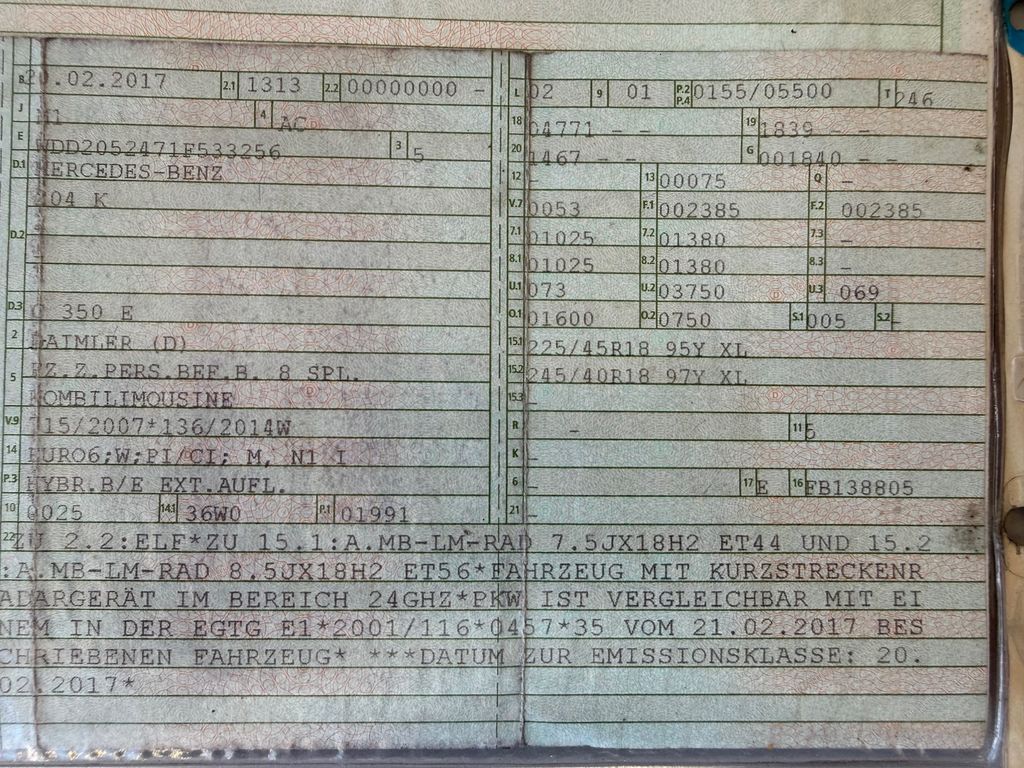 B 20.02.2017 2.1 1313 2.2 00000000 -
J M1 4 AC
E WDD2052471F533256 3 5
D.1 MERCEDES-BENZ
204 K
D.2
D.3 C 350 E
2 DAIMLER (D)
5 FZ.Z.PERS.BEF.B. 8 SPL.
KOMBILIMOUSINE
V.9 715/2007*136/2014W
14 EURO6;W;PI/CI; M, N1 I
P.3 HYBR.B/E EXT.AUFL.
10 0025 14.1 36W0 P.1 01991
L 02 9 01 P.2 P.4 0155/05500 T 246
18 04771 - - 19 1839 - -
20 1467 - - G 001840 - -
12 - 13 00075 Q -
V.7 0053 F.1 002385 F.2 002385
7.1 01025 7.2 01380 7.3 -
8.1 01025 8.2 01380 8.3 -
U.1 073 U.2 03750 U.3 069
O.1 01600 O.2 0750 S.1 005 S.2 -
15.1 225/45R18 95Y XL
15.2 245/40R18 97Y XL
15.3 -
R - 11 5
K -
6 - 17 E 16 FB138805
21 -
22 ZU 2.2:ELF*ZU 15.1:A.MB-LM-RAD 7.5JX18H2 ET44 UND 15.2
:A.MB-LM-RAD 8.5JX18H2 ET56*FAHRZEUG MIT KURZSTRECKENR
ADARGERÄT IM BEREICH 24GHZ*PKW IST VERGLEICHBAR MIT EI
NEM IN DER EGTG E1*2001/116*0457*35 VOM 21.02.2017 BES
CHRIEBENEN FAHRZEUG* ***DATUM ZUR EMISSIONSKLASSE: 20.
02.2017*